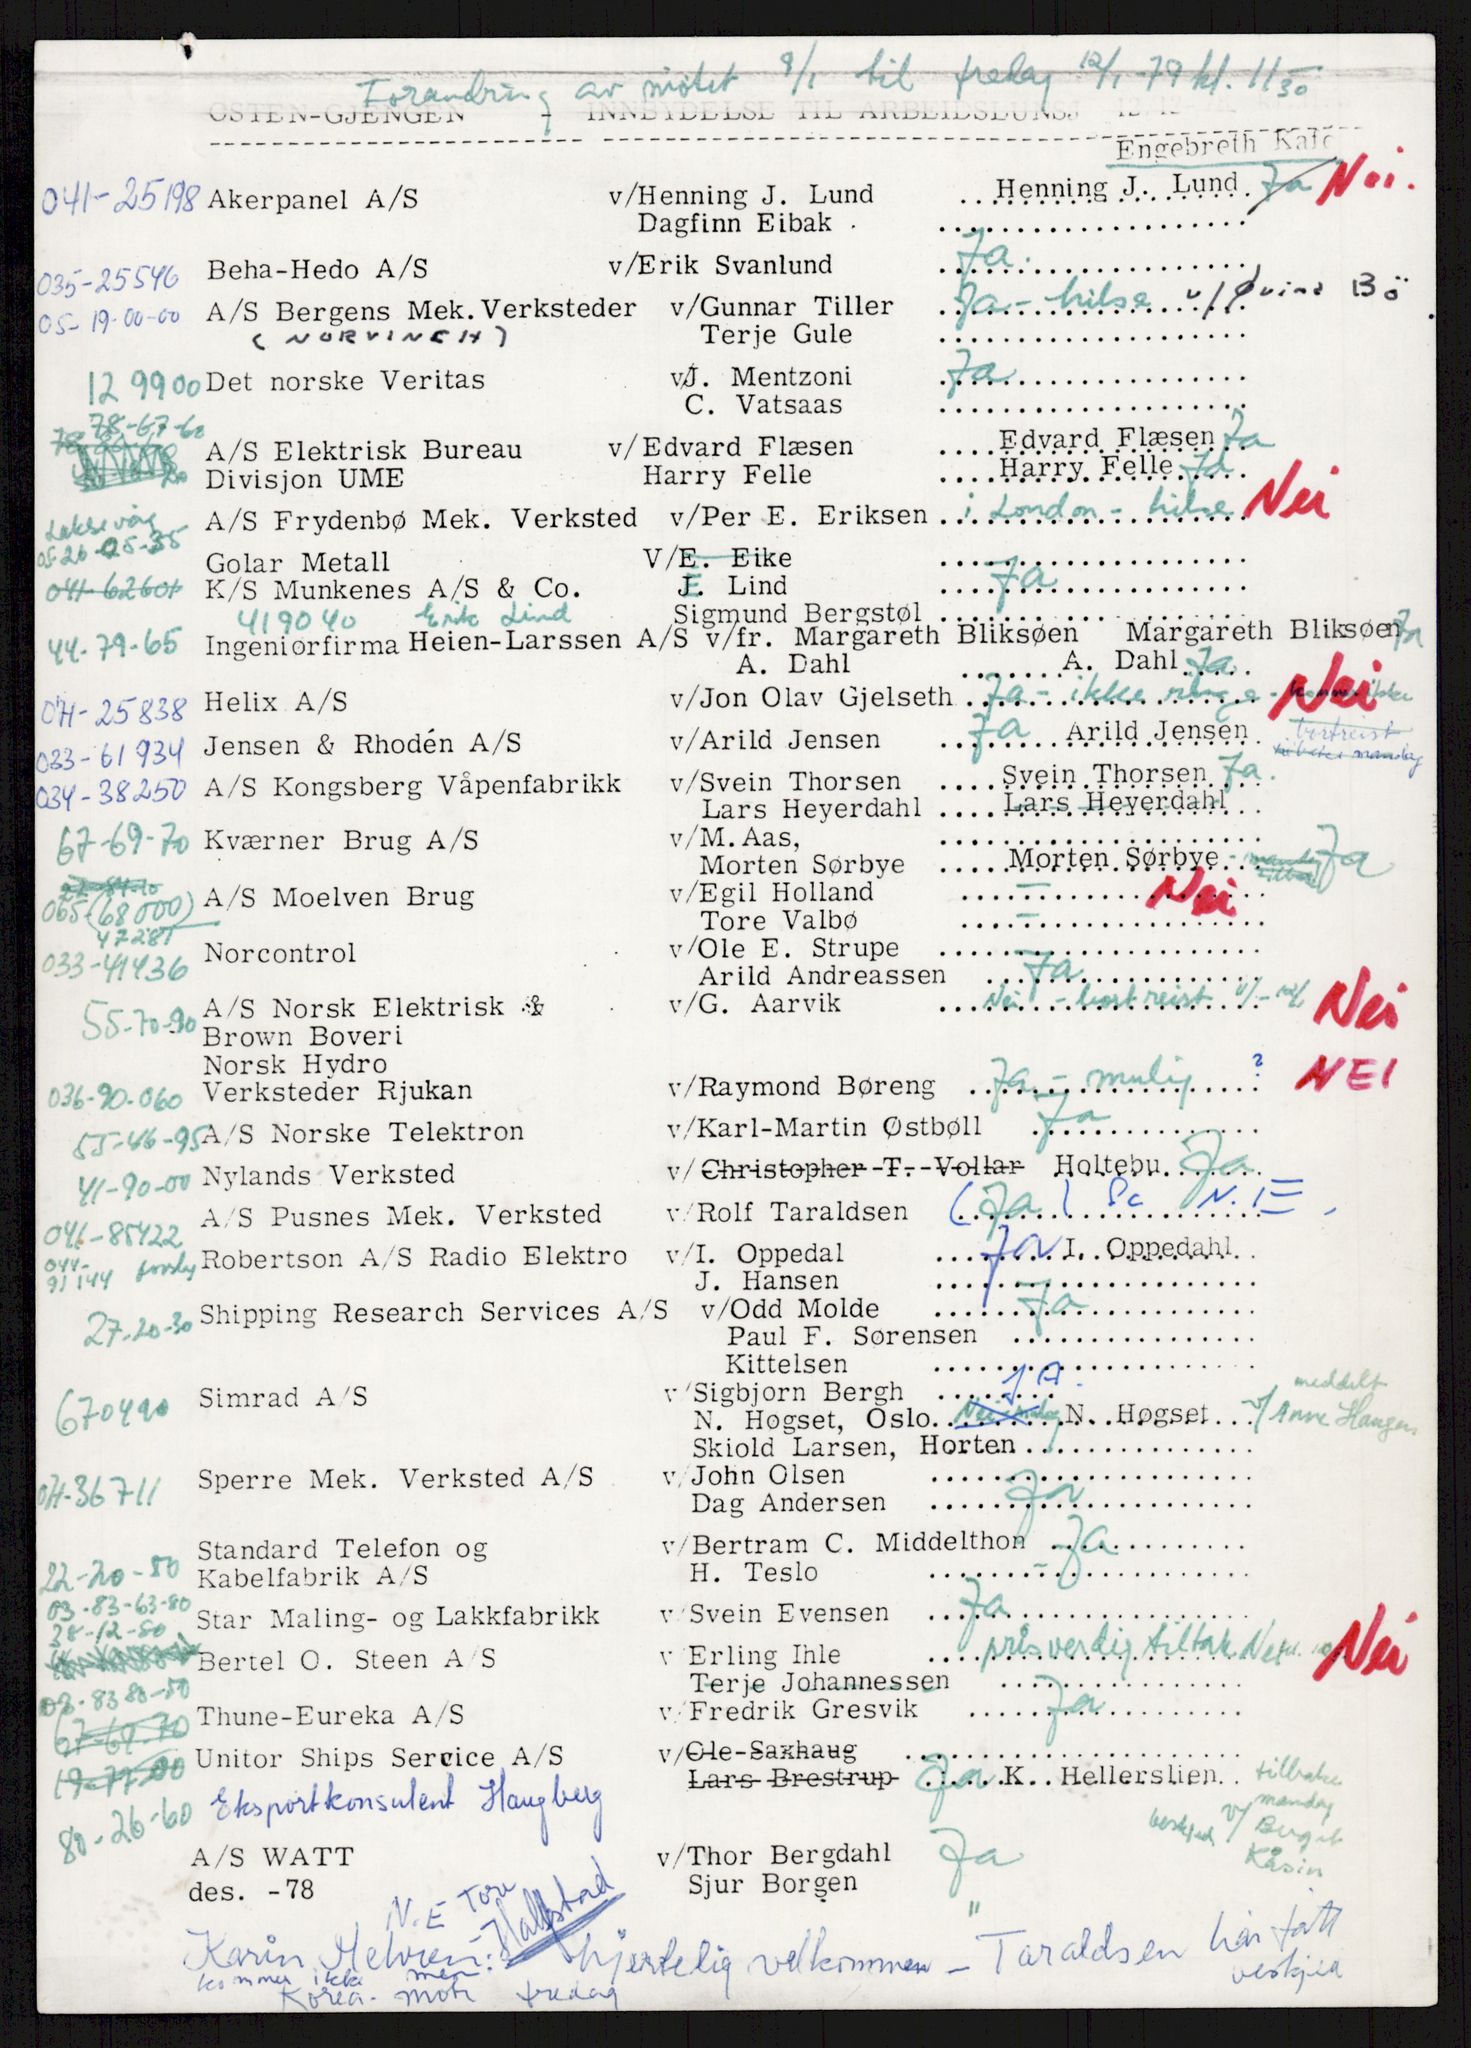 Forandring av møtet 8/1 til fredag 12/1-79 kl. 11.30
OSTEN-GJENGEN INNBYDELSE TIL ARBEIDSLUNSJ 12/12
Engebreth Kafe
041-25198 Akerpanel A/S v/Henning J. Lund Henning J. Lund Ja Nei.
Dagfinn Eibak
035-25546 Beha-Hedo A/S v/Erik Svanlund Ja.
05-19-00-00 A/S Bergens Mek. Verksteder v/Gunnar Tiller Ja - hilse v/Øvind Bö
(NORVINCH) Terje Gule
129900 Det norske Veritas v/J. Mentzoni Ja
C. Vatsaas
78-67-60
A/S Elektrisk Bureau v/Edvard Flæsen Edvard Flæsen Ja
Divisjon UME Harry Felle Harry Felle Ja
Laksevåg A/S Frydenbø Mek. Verksted v/Per E. Eriksen i London - hilse Nei
05-26-05-35
Golar Metall V/E. Eike
041-62601 K/S Munkenes A/S & Co. J. Lind Ja
419040 Erik Lind Sigmund Bergstøl
44-79-65 Ingeniørfirma Heien-Larssen A/S v/fr. Margareth Bliksøen Margareth Bliksøen Ja
A. Dahl A. Dahl Ja
071-25838 Helix A/S v/Jon Olav Gjelseth Ja - ikke ringe - kommer ikke Nei
033-61934 Jensen & Rhodén A/S v/Arild Jensen Ja Arild Jensen bortreist
tilbake mandag
034-38250 A/S Kongsberg Våpenfabrikk v/Svein Thorsen Svein Thorsen Ja.
Lars Heyerdahl Lars Heyerdahl
67-69-70 Kværner Brug A/S v/M. Aas,
Morten Sørbye Morten Sørbye - mandag tilbake Ja
065-(68000) A/S Moelven Brug v/Egil Holland - Nei
47281 Tore Valbø -
033-41436 Norcontrol v/Ole E. Strupe
Arild Andreassen Ja
55-70-90 A/S Norsk Elektrisk & v/G. Aarvik Nei - bortreist 11/-12/1 Nei
Brown Boveri
Norsk Hydro
036-90-060 Verksteder Rjukan v/Raymond Børeng Ja - mulig ? NEI
55-46-95 A/S Norske Telektron v/Karl-Martin Østbøll Ja
41-90-00 Nylands Verksted v/ Christopher T. Vollar Holtebu Ja
041-85422 A/S Pusnes Mek. Verksted v/Rolf Taraldsen (Ja)
044-91144 Robertson A/S Radio Elektro v/I. Oppedal Ja I. Oppedahl
J. Hansen
27-20-30 Shipping Research Services A/S v/Odd Molde Ja
Paul F. Sørensen
Kittelsen
670490 Simrad A/S v/Sigbjørn Bergh JA. meddelt
N. Høgset, Oslo N. Høgset v/Anne Haugen
Skiold Larsen, Horten
071-36711 Sperre Mek. Verksted A/S v/John Olsen
Dag Andersen Ja
Standard Telefon og v/Bertram C. Middelthon Ja
22-20-80 Kabelfabrikk A/S H. Teslo -
03-83-63-80 Star Maling- og Lakkfabrikk v/Svein Evensen Ja
38-12-80
Bertel O. Steen A/S v/Erling Ihle prisverdig tiltak Nei
Terje Johannessen
03-8380-50
67-69-70 Thune-Eureka A/S v/Fredrik Gresvik Ja
19-77-00 Unitor Ships Service A/S v/Ole Saxhaug
Lars Brestrup Ja K. Hellerslien tilbake mandag
80-26-60 Eksportkonsulent Haugberg beskjed v/Birgit Kåsin
A/S WATT v/Thor Bergdahl Ja
des. -78 Sjur Borgen "
N.E Tore Hallstad
Karin Mehren: Hjertelig velkommen - Taraldsen har fått beskjed
kommer ikke men
Korea-møte fredag